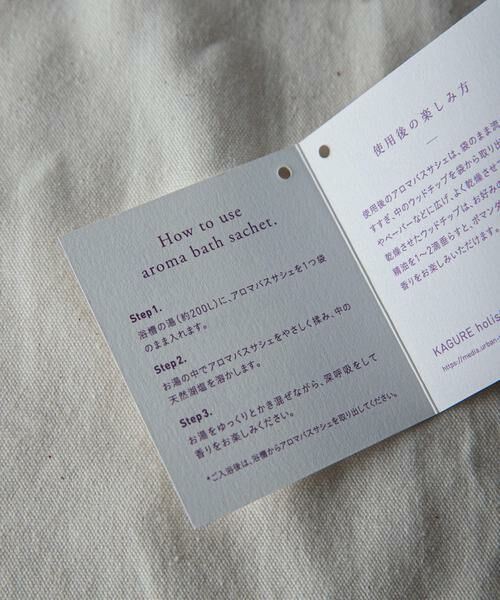 How to use
aroma bath sachet.
Step1.
浴槽の湯(約200L)に、アロマバスサシェを1つ袋
のまま入れます。
Step2.
お湯の中でアロマバスサシェをやさしく揉み、中の
天然湖塩を溶かします。
Step3.
お湯をゆっくりとかき混ぜながら、深呼吸をして
香りをお楽しみください。
*ご入浴後は、浴槽からアロマバスサシェを取り出してください。
使用後の楽しみ方
使用後のアロマバスサシェは、袋のまま流
すすぎ、中のウッドチップを袋から取り出
やペーパーなどに広げ、よく乾燥させて
乾燥させたウッドチップは、お好み
精油を1〜2滴垂らすと、ポマンダ
香りをお楽しみいただけます。
KAGURE holis
https://media.urban-